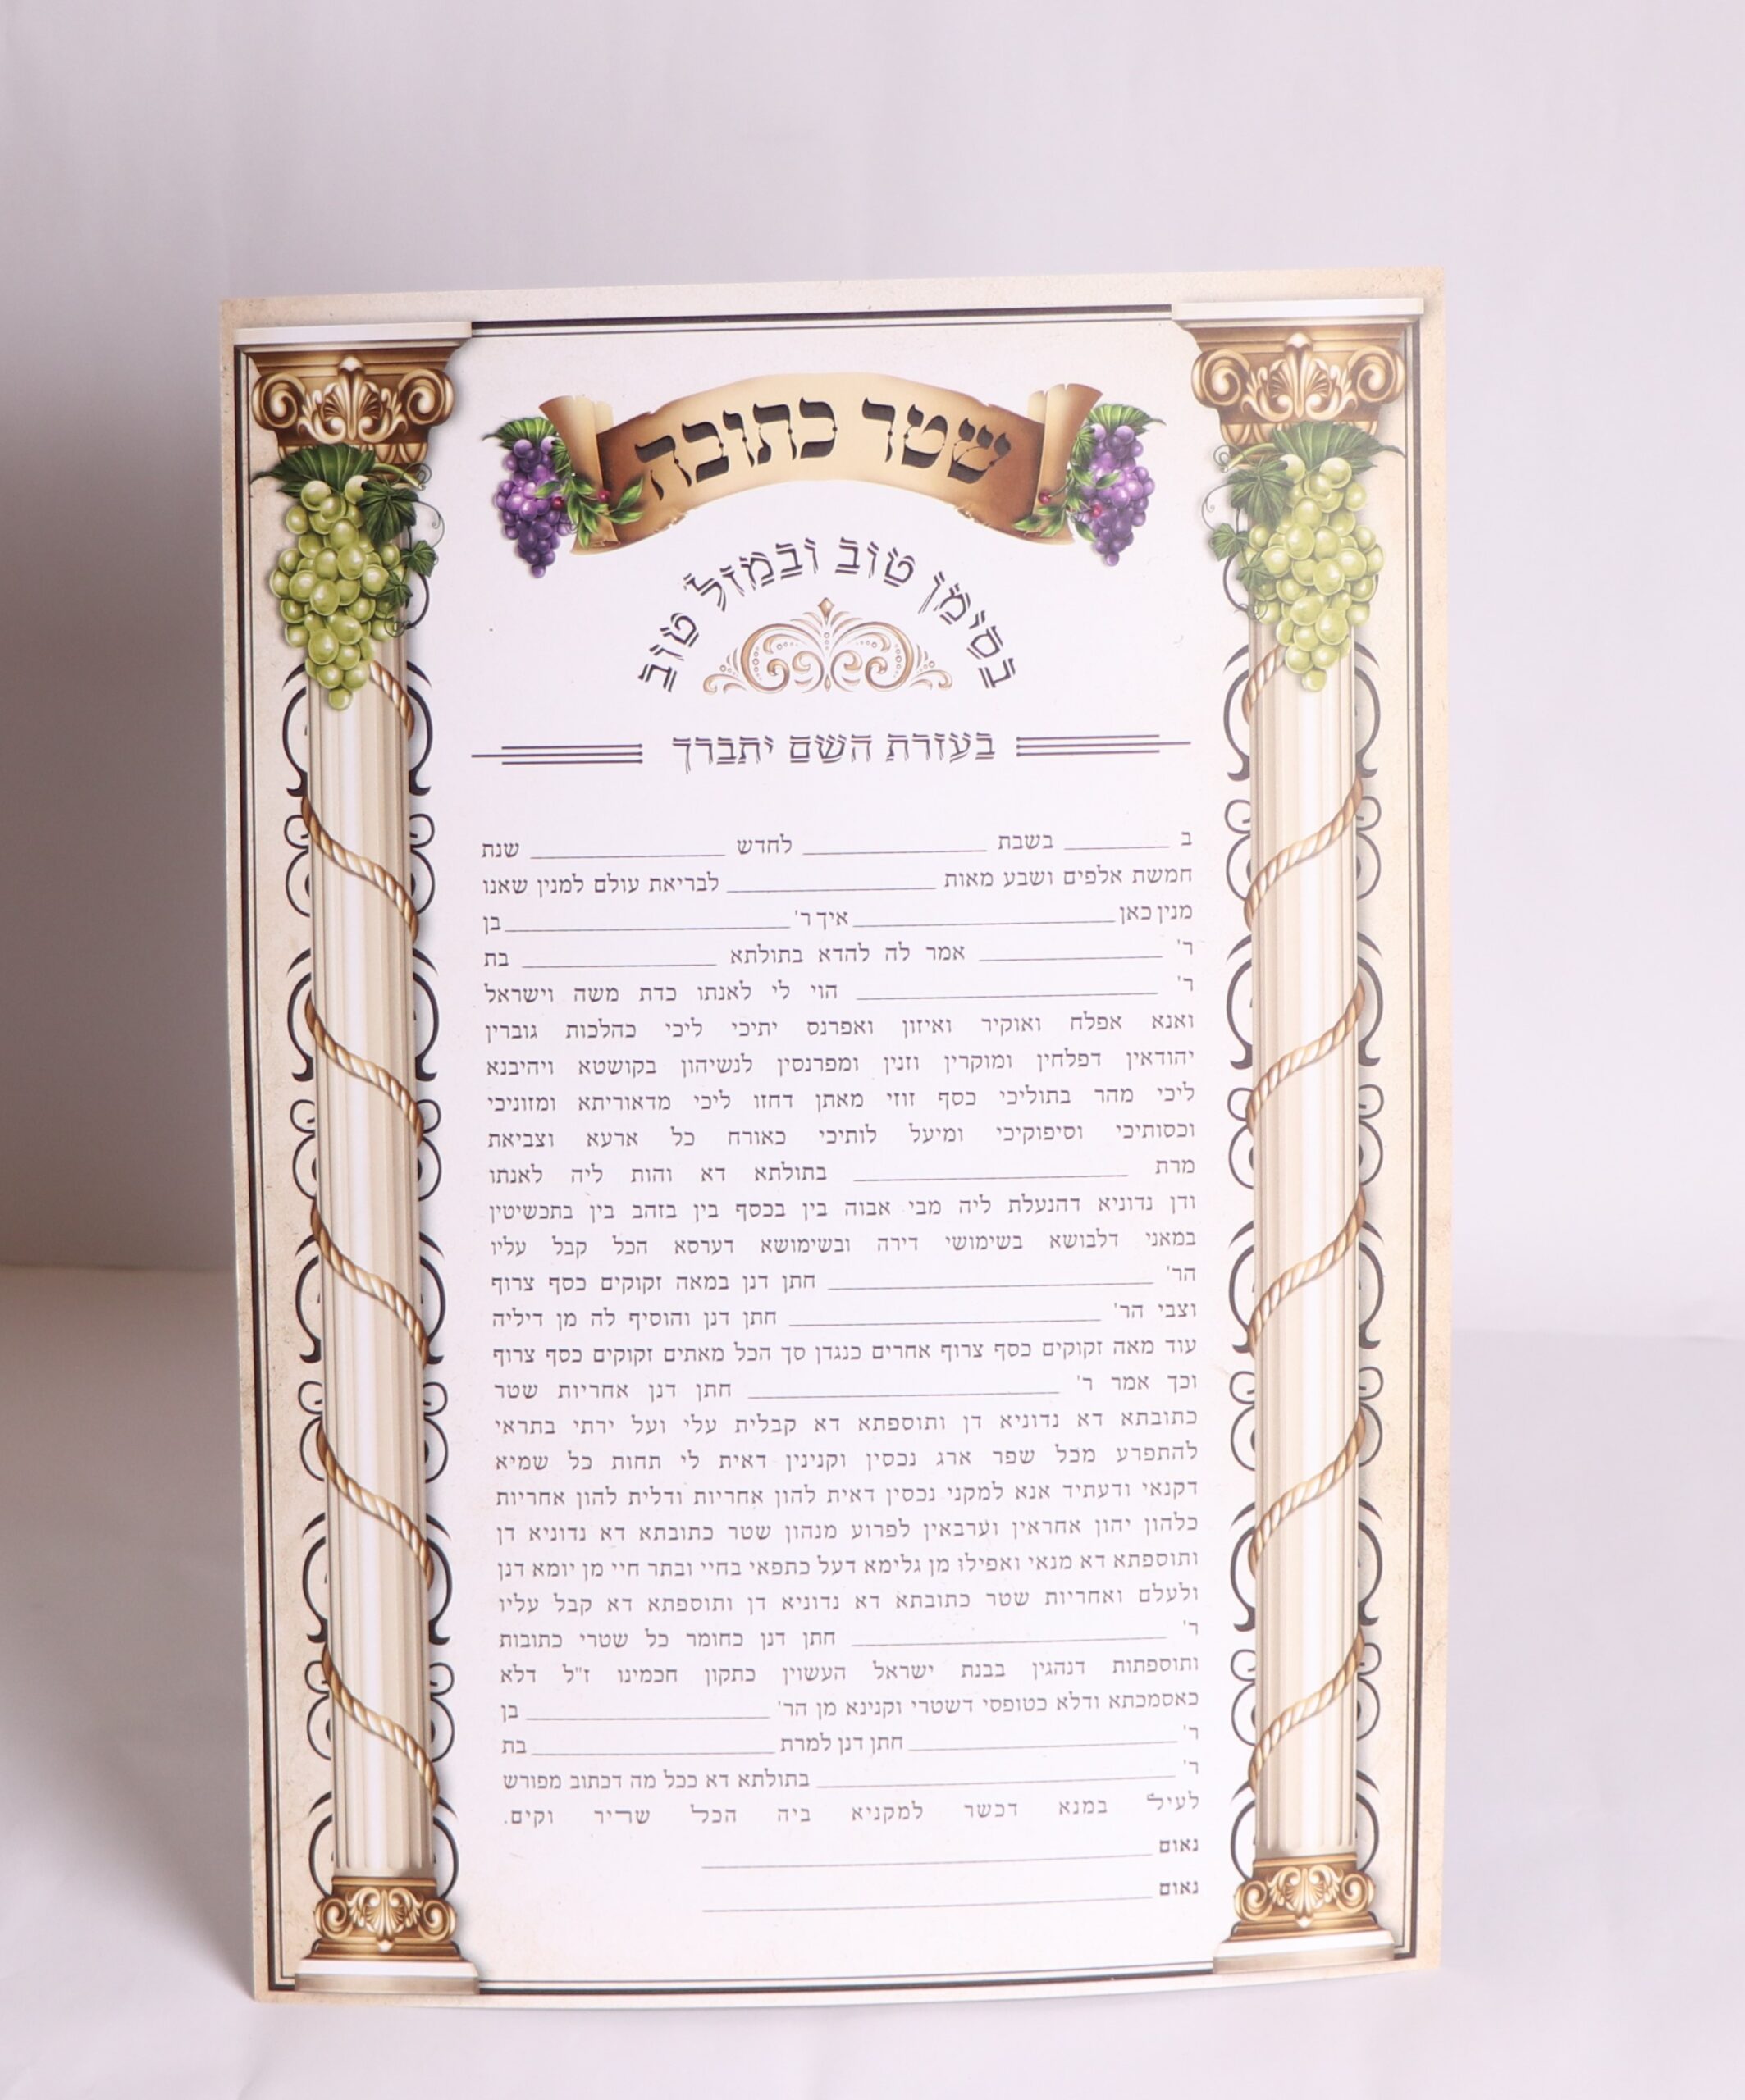 שטר כתובה
בסימן טוב ובמזל טוב
בעזרת השם יתברך
ב ________ בשבת ________ לחדש ________ שנת
חמשת אלפים ושבע מאות ________ לבריאת עולם למנין שאנו
מנין כאן ________ איך ר' ________ בן
ר' ________ אמר לה להדא בתולתא ________ בת
ר' ________ הוי לי לאנתו כדת משה וישראל
ואנא אפלח ואוקיר ואיזון ואפרנס יתיכי ליכי כהלכות גוברין
יהודאין דפלחין ומוקרין וזנין ומפרנסין לנשיהון בקושטא ויהיבנא
ליכי מהר בתוליכי כסף זוזי מאתן דחזו ליכי מדאוריתא ומזוניכי
וכסותיכי וסיפוקיכי ומיעל לותיכי כאורח כל ארעא וצביאת
מרת ________ בתולתא דא והות ליה לאנתו
ודן נדוניא דהנעלת ליה מבי אבוה בין בכסף בין בזהב בין בתכשיטין
במאני דלבושא בשימושי דירה ובשימושא דערסא הכל קבל עליו
הר' ________ חתן דנן במאה זקוקים כסף צרוף
וצבי הר' ________ חתן דנן והוסיף לה מן דיליה
עוד מאה זקוקים כסף צרוף אחרים כנגדן סך הכל מאתים זקוקים כסף צרוף
וכך אמר ר' ________ חתן דנן אחריות שטר
כתובתא דא נדוניא דן ותוספתא דא קבלית עלי ועל ירתי בתראי
להתפרע מכל שפר ארג נכסין וקנינין דאית לי תחות כל שמיא
דקנאי ודעתיד אנא למקני נכסין דאית להון אחריות ודלית להון אחריות
כלהון יהון אחראין וערבאין לפרוע מנהון שטר כתובתא דא נדוניא דן
ותוספתא דא מנאי ואפילו מן גלימא דעל כתפאי בחיי ובתר חיי מן יומא דנן
ולעלם ואחריות שטר כתובתא דא נדוניא דן ותוספתא דא קבל עליו
ר' ________ חתן דנן כחומר כל שטרי כתובות
ותוספתות דנהגין בבנת ישראל העשוין כתקון חכמינו ז"ל דלא
כאסמכתא ודלא כטופסי דשטרי וקנינא מן הר' ________ בן
ר' ________ חתן דנן למרת ________ בת
ר' ________ בתולתא דא ככל מה דכתוב מפורש
לעיל במנא דכשר למקניא ביה הכל שריר וקים.
נאום ________
נאום ________